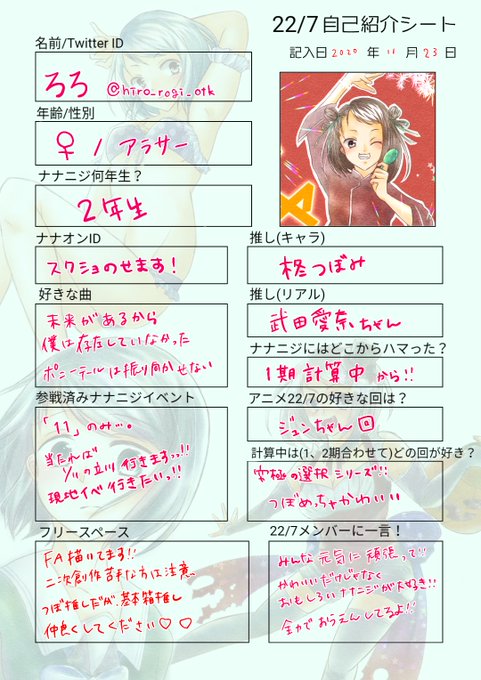 22/7 自己紹介シート
記入日 2020 年 11 月 23 日
名前/Twitter ID
ろろ @hiro_rogi_otk
年齢/性別
♀ / アラサー
ナナニジ何年生？
2年生
ナナオンID
スクショのせます!
推し(キャラ)
柊つぼみ
好きな曲
未来があるから
僕は存在していなかった
ポニーテールは振り向かせない
推し(リアル)
武田愛奈ちゃん
ナナニジにはどこからハマった？
1期計算中から!!
参戦済みナナニジイベント
「11」のみ…。
当たれば
1/11の立川行きますっ!!
現地イベ行きたいっ!!
アニメ22/7の好きな回は？
ジュンちゃん回
計算中は(1、2期合わせて)どの回が好き？
究極の選択シリーズ!!
つぼめっちゃかわいい
フリースペース
FA描いてます!!
二次創作苦手な方は注意。
つぼ推しだが、基本箱推し
仲良くしてください♡♡
22/7メンバーに一言！
みんな元気に頑張って!!
かわいいだけじゃなく
おもしろいナナニジが大好き!!
全力でおうえんしてるよ!!